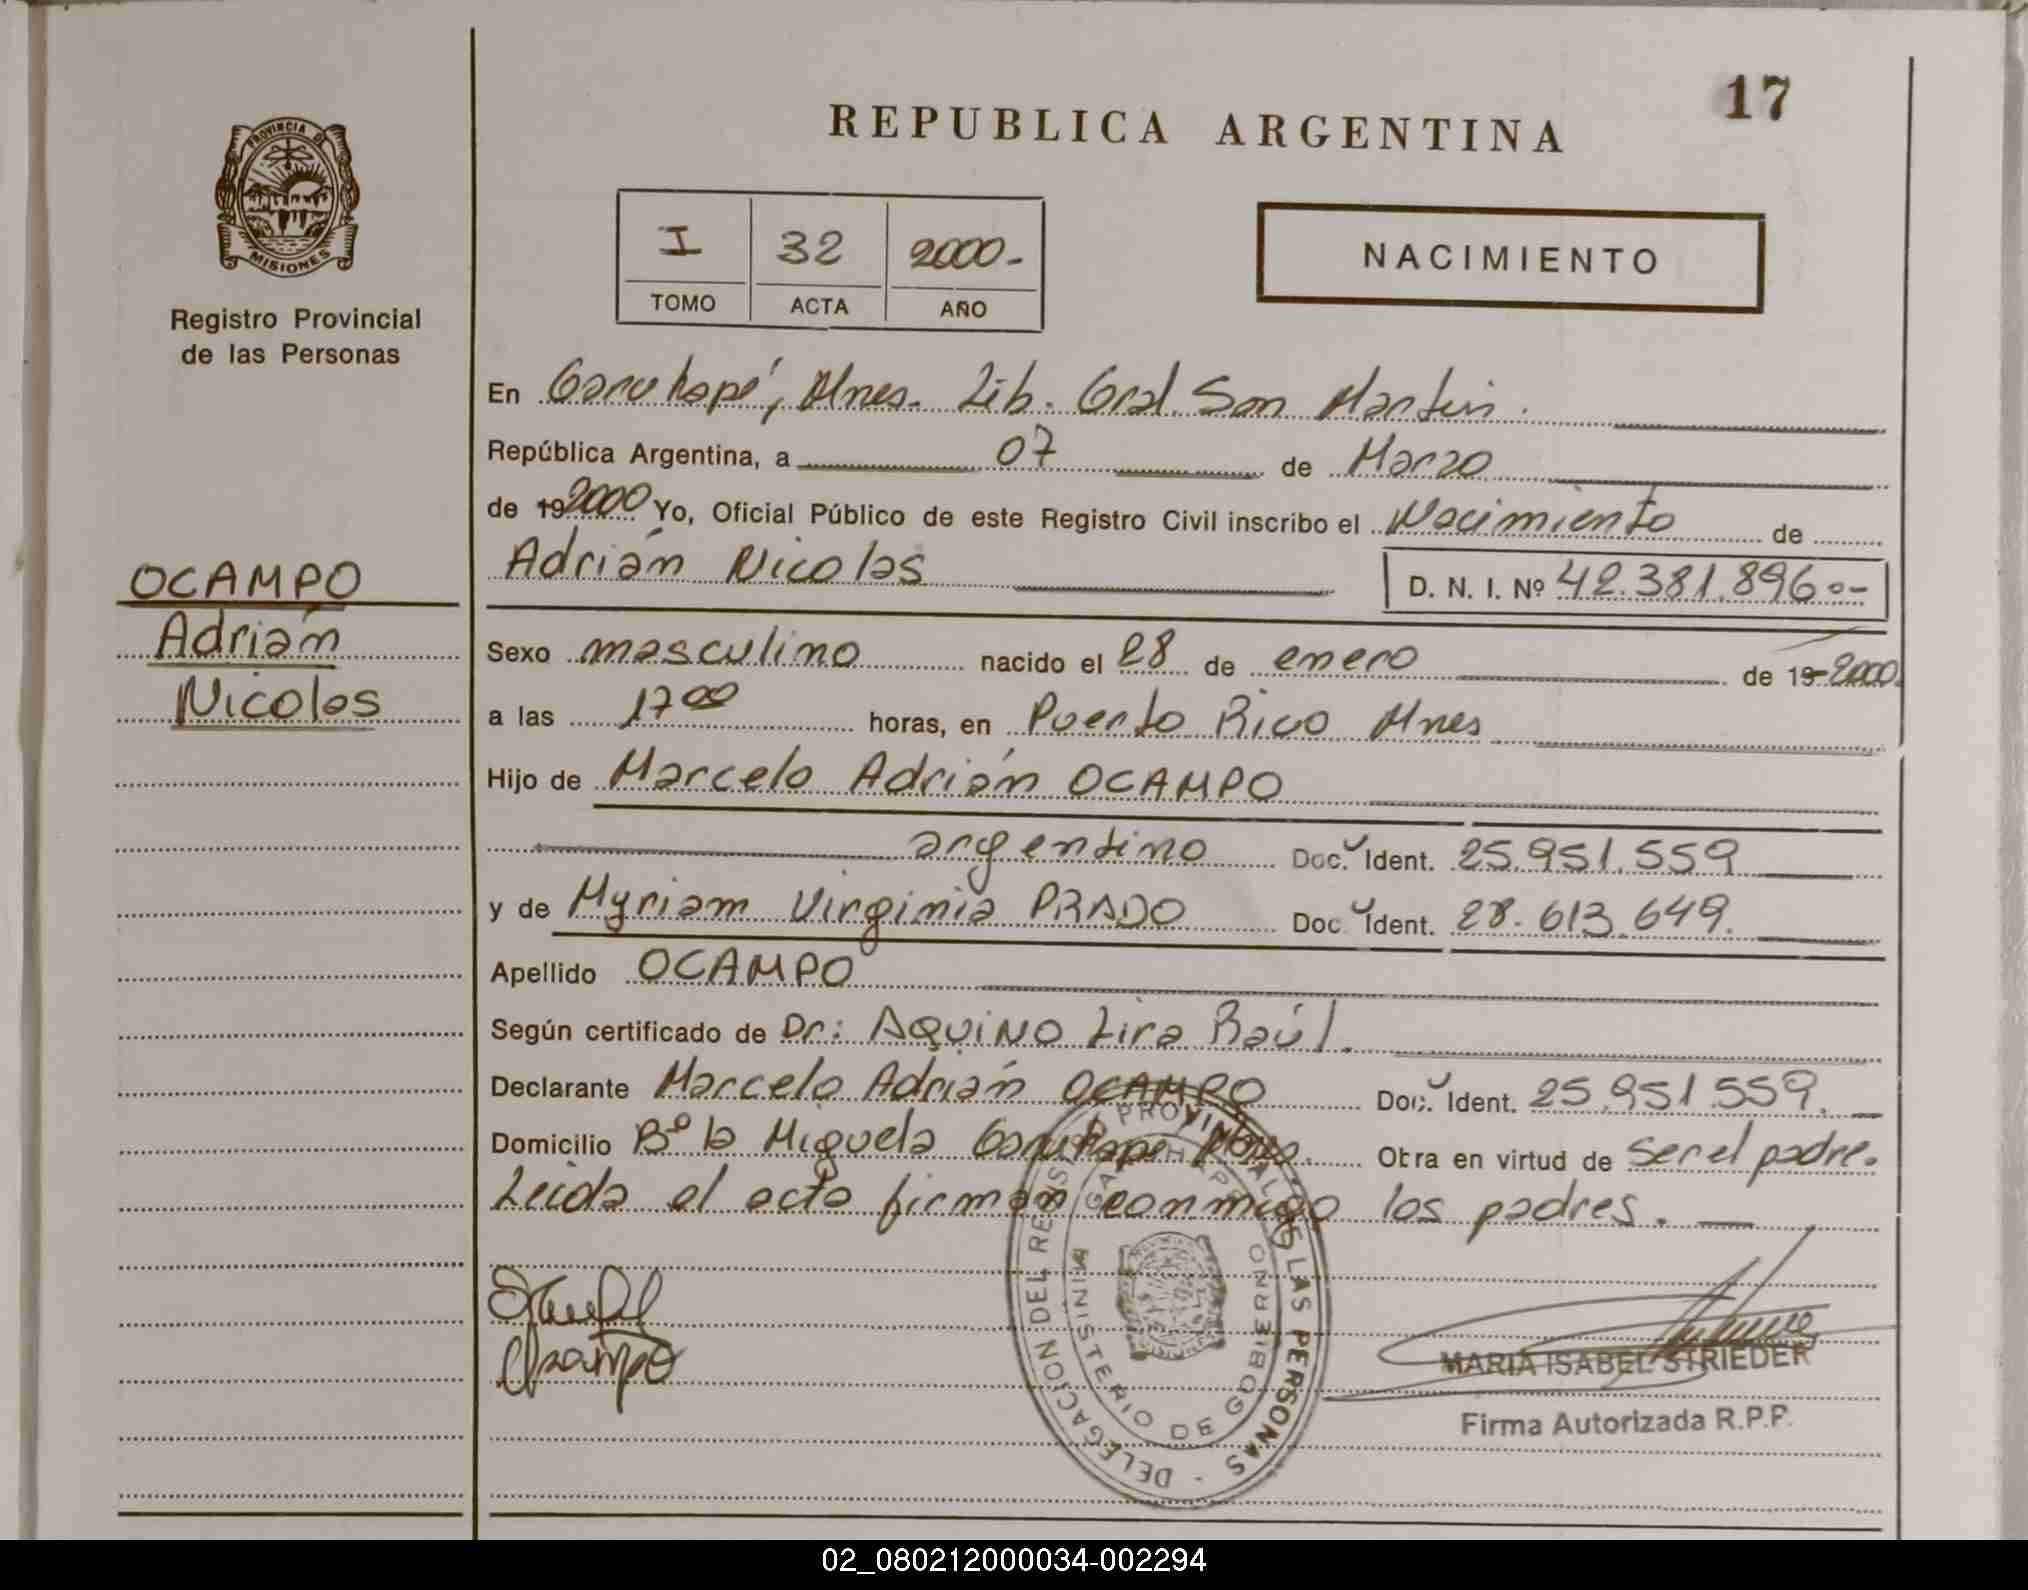 17
REPUBLICA ARGENTINA
PROVINCIA DE
MISIONES
Registro Provincial
de las Personas
I 32 2000-
TOMO ACTA AÑO
NACIMIENTO
En Garuhapé, Mnes. Lib. Gral. San Martín.
República Argentina, a 07 de Marzo
de 19 2000 Yo, Oficial Público de este Registro Civil inscribo el Nacimiento de
Adrián Nicolas D. N. I. Nº 42.381.896.-
OCAMPO
Adrián
Nicolas
Sexo masculino nacido el 28 de enero de 19 2000.
a las 17 00 horas, en Puerto Rico Mnes
Hijo de Marcelo Adrián OCAMPO
argentino Doc. Ident. 25.951.559
y de Myriam Virginia PRADO Doc. Ident. 28.613.649.
Apellido OCAMPO
Según certificado de Dr: AQUINO Lira Raúl.
Declarante Marcelo Adrián OCAMPO Doc. Ident. 25.951.559.
Domicilio Bº la Miguela Garuhape Mnes. Obra en virtud de ser el padre.
Leida el acta firman conmigo los padres.
Ocampo
DELEGACION DEL REGISTRO PROVINCIAL DE LAS PERSONAS -
GARUHAPE
MINISTERIO DE GOBIERNO
MARIA ISABEL STRIEDER
Firma Autorizada R.P.P.
02_080212000034-002294